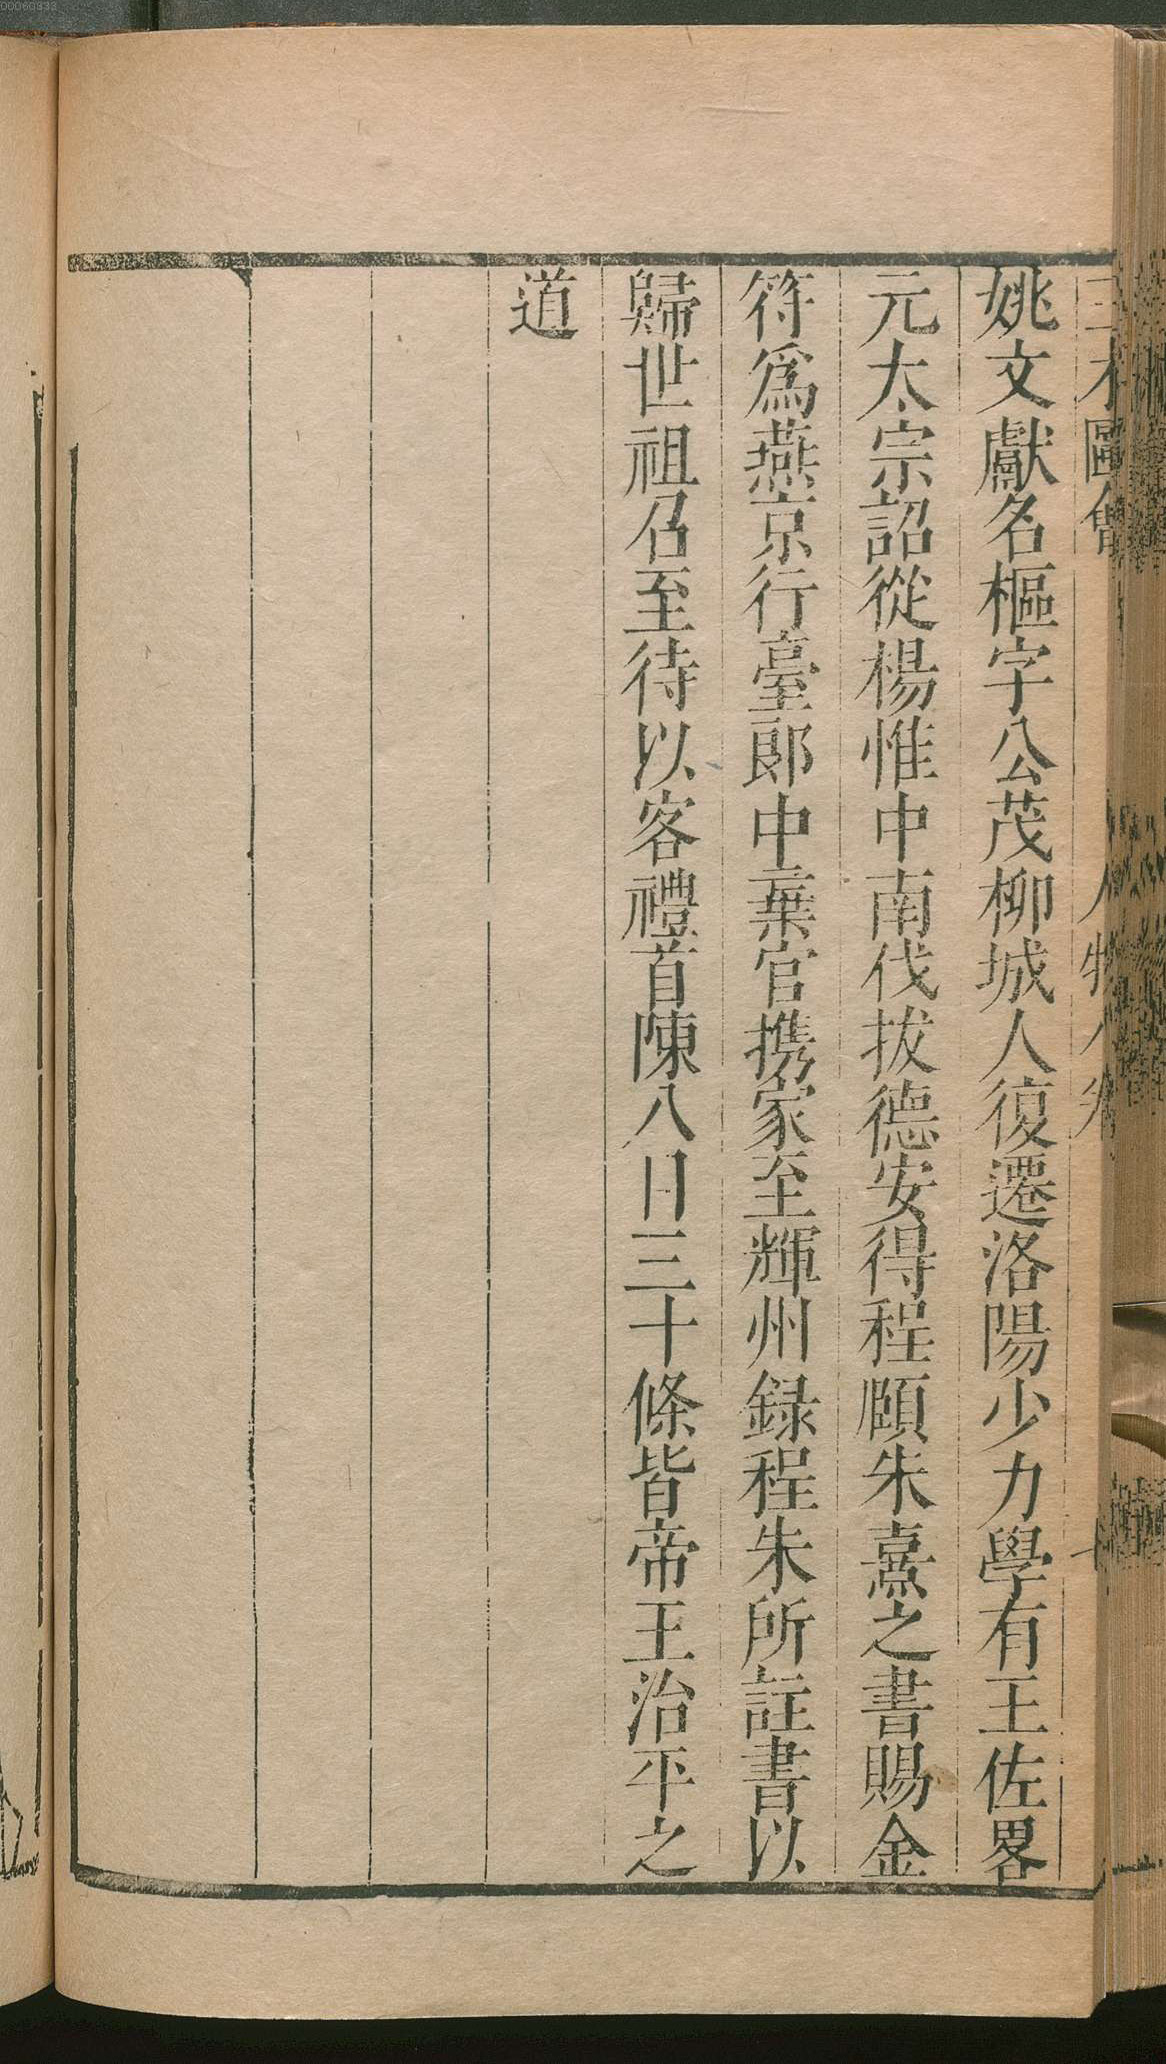 姚文獻名樞字公茂柳城人復遷洛陽少力學有王佐畧
元太宗詔從楊惟中南伐拔德安得程頤朱熹之書賜金
符爲燕京行臺郎中棄官携家至輝州録程朱所註書以
歸世祖召至待以客禮首陳八目三十條皆帝王治平之
道
00060333